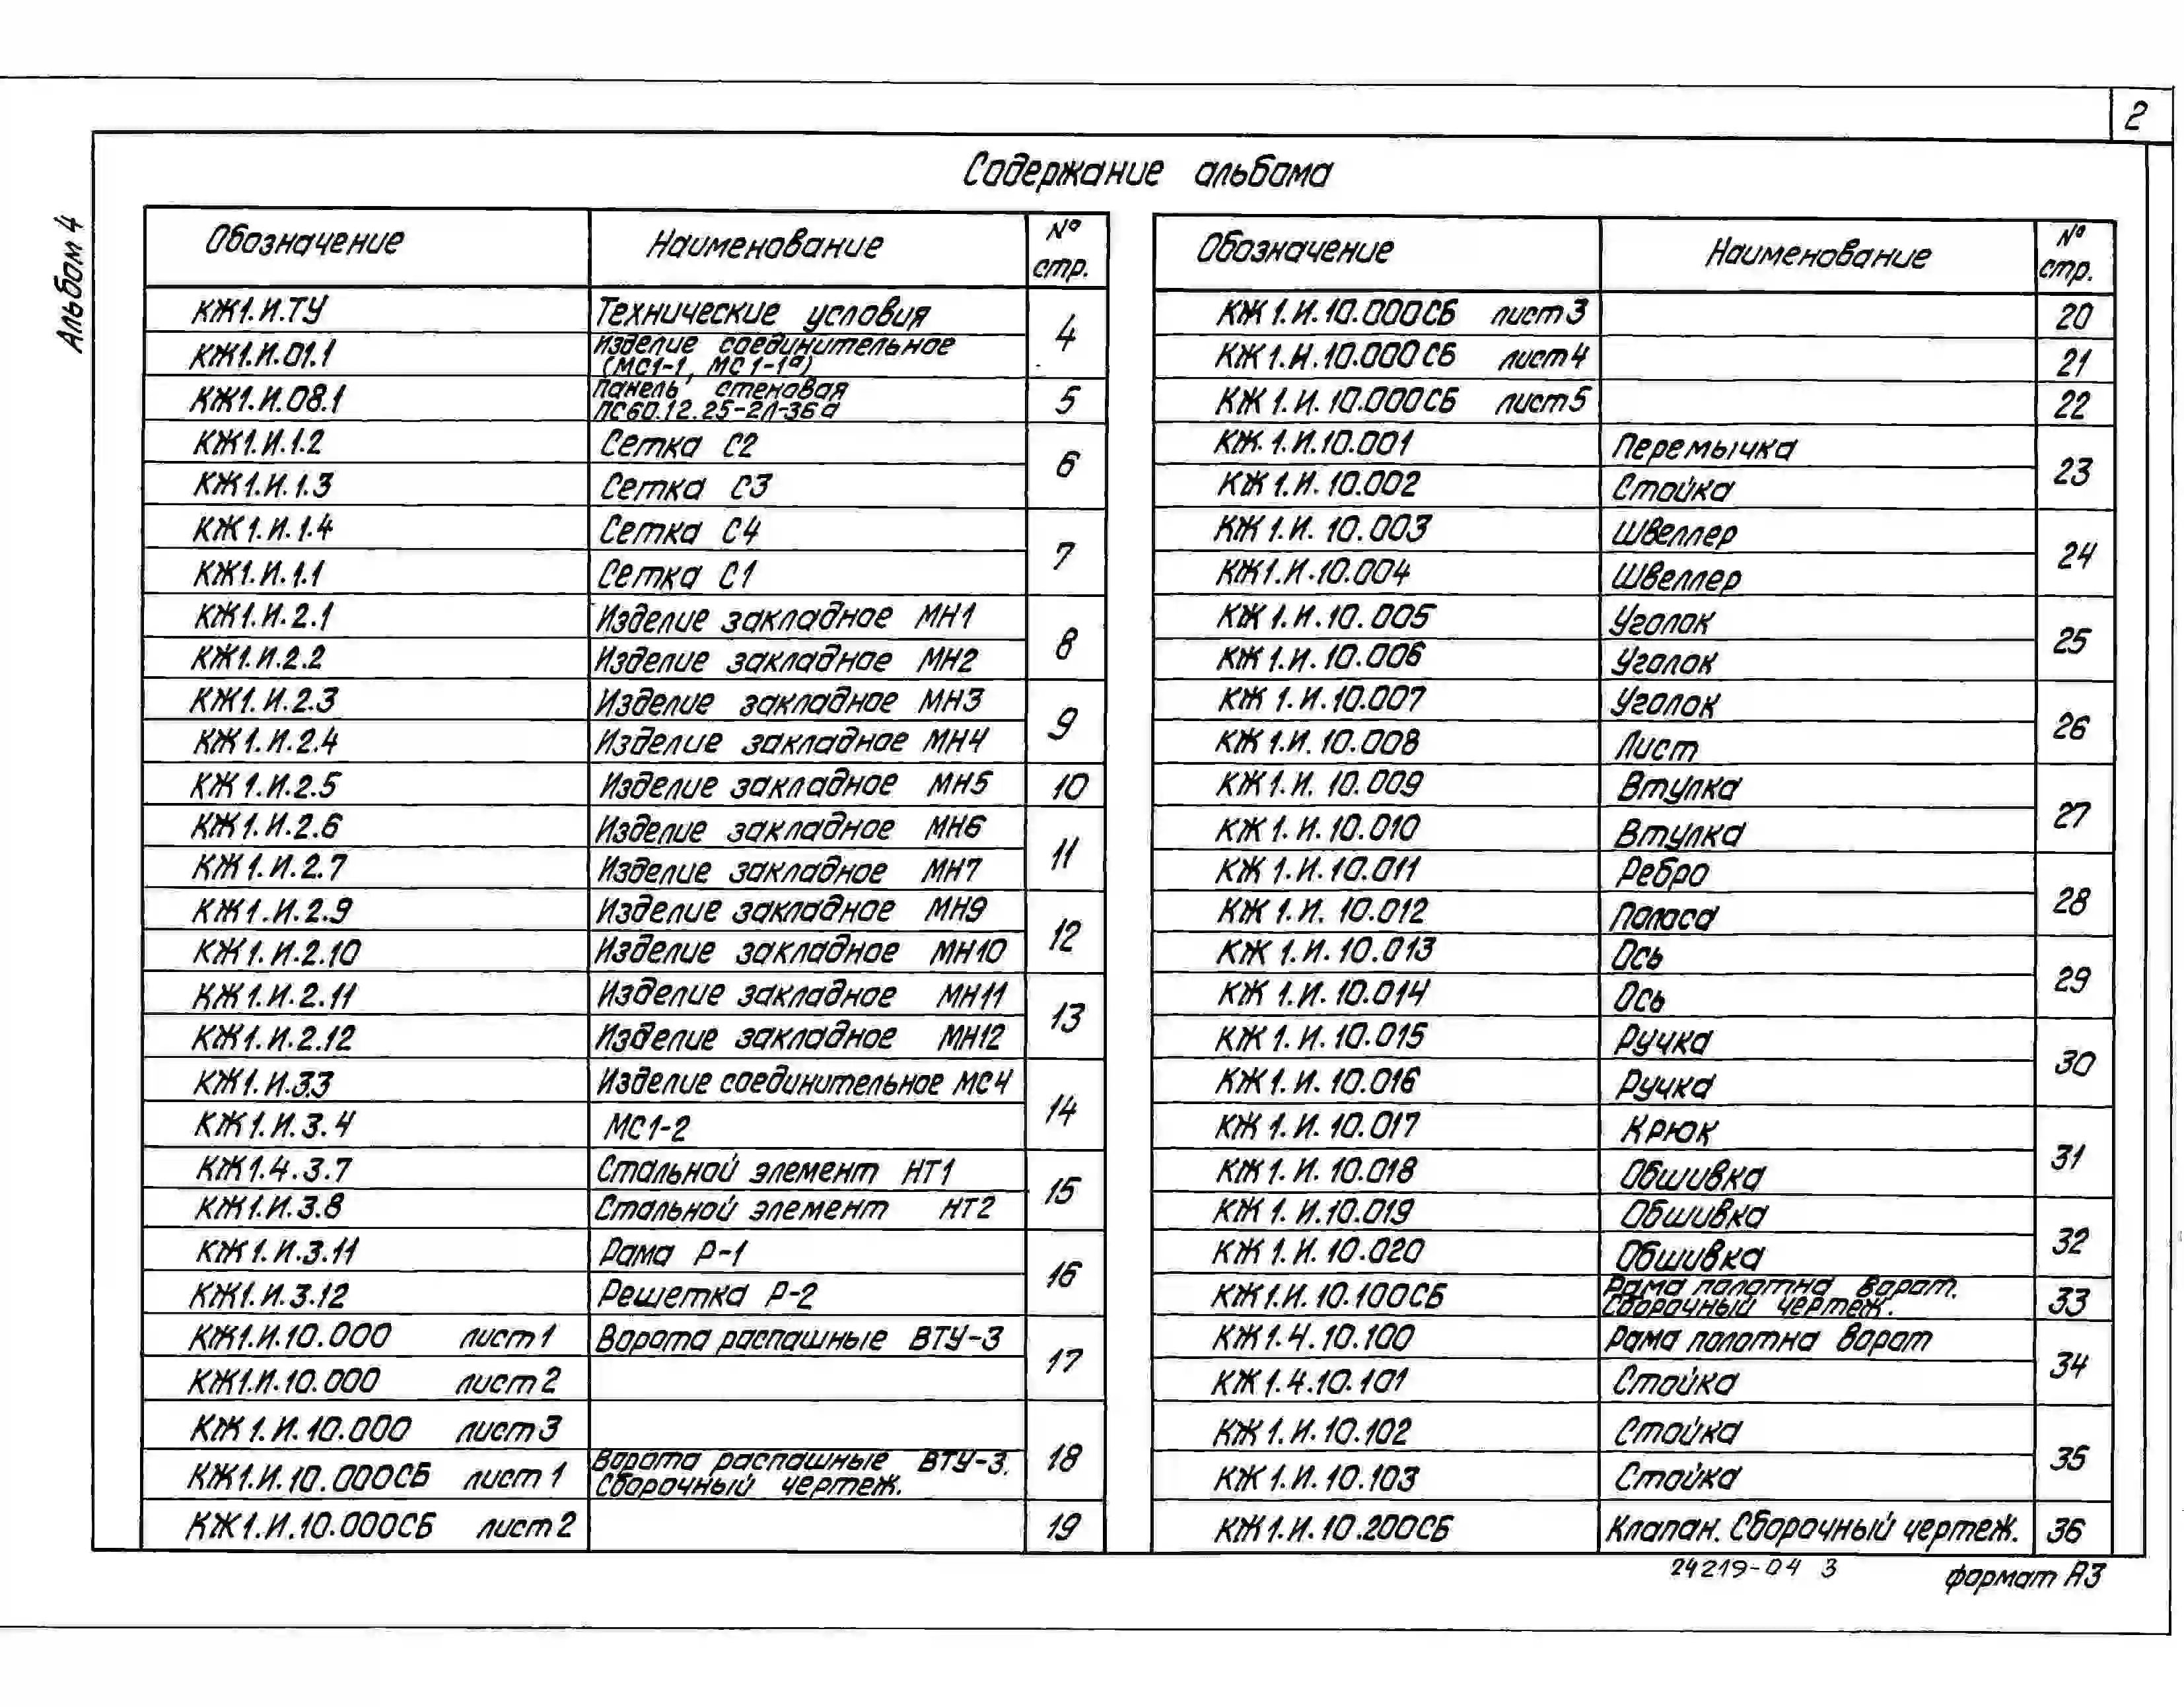 2
Альбом 4
Содержание альбома
Обозначение Наименование № стр.
КЖ1.И.ТУ Технические условия 4
КЖ1.И.01.1 Изделие соединительное
(МС1-1, МС1-1а)
КЖ1.И.08.1 Панель стеновая 5
ПС60.12.25-2Л-36а
КЖ1.И.1.2 Сетка С2 6
КЖ1.И.1.3 Сетка С3
КЖ1.И.1.4 Сетка С4 7
КЖ1.И.1.1 Сетка С1
КЖ1.И.2.1 Изделие закладное МН1 8
КЖ1.И.2.2 Изделие закладное МН2
КЖ1.И.2.3 Изделие закладное МН3 9
КЖ1.И.2.4 Изделие закладное МН4
КЖ1.И.2.5 Изделие закладное МН5 10
КЖ1.И.2.6 Изделие закладное МН6 11
КЖ1.И.2.7 Изделие закладное МН7
КЖ1.И.2.9 Изделие закладное МН9 12
КЖ1.И.2.10 Изделие закладное МН10
КЖ1.И.2.11 Изделие закладное МН11 13
КЖ1.И.2.12 Изделие закладное МН12
КЖ1.И.3.3 Изделие соединительное МС4 14
КЖ1.И.3.4 МС1-2
КЖ1.4.3.7 Стальной элемент НТ1 15
КЖ1.И.3.8 Стальной элемент НТ2
КЖ1.И.3.11 Рама Р-1 16
КЖ1.И.3.12 Решетка Р-2
КЖ1.И.10.000 лист 1 Ворота распашные ВТУ-3 17
КЖ1.И.10.000 лист 2
КЖ1.И.10.000 лист 3 18
КЖ1.И.10.000СБ лист 1 Ворота распашные ВТУ-3.
Сборочный чертеж.
КЖ1.И.10.000СБ лист 2 19
Обозначение Наименование № стр.
КЖ1.И.10.000СБ лист 3 20
КЖ1.И.10.000СБ лист 4 21
КЖ1.И.10.000СБ лист 5 22
КЖ.1.И.10.001 Перемычка 23
КЖ1.И.10.002 Стойка
КЖ1.И.10.003 Швеллер 24
КЖ1.И.10.004 Швеллер
КЖ1.И.10.005 Уголок 25
КЖ1.И.10.006 Уголок
КЖ1.И.10.007 Уголок 26
КЖ1.И.10.008 Лист
КЖ1.И.10.009 Втулка 27
КЖ1.И.10.010 Втулка
КЖ1.И.10.011 Ребро 28
КЖ1.И.10.012 Полоса
КЖ1.И.10.013 Ось 29
КЖ1.И.10.014 Ось
КЖ1.И.10.015 Ручка 30
КЖ1.И.10.016 Ручка
КЖ1.И.10.017 Крюк 31
КЖ1.И.10.018 Обшивка
КЖ1.И.10.019 Обшивка 32
КЖ1.И.10.020 Обшивка
КЖ1.И.10.100СБ Рама полотна ворот. 33
Сборочный чертеж.
КЖ1.4.10.100 Рама полотна ворот 34
КЖ1.4.10.101 Стойка
КЖ1.И.10.102 Стойка 35
КЖ1.И.10.103 Стойка
КЖ1.И.10.200СБ Клапан. Сборочный чертеж. 36
24219-04 3
формат А3